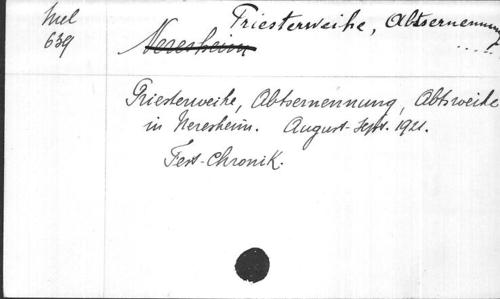 Mel
639
Priesterweihe, Abtsernennung
Neresheim
.....
Priesterweihe, Abtsernennung, Abtsweihe
in Neresheim. August-Sept. 1921.
Fest-Chronik.